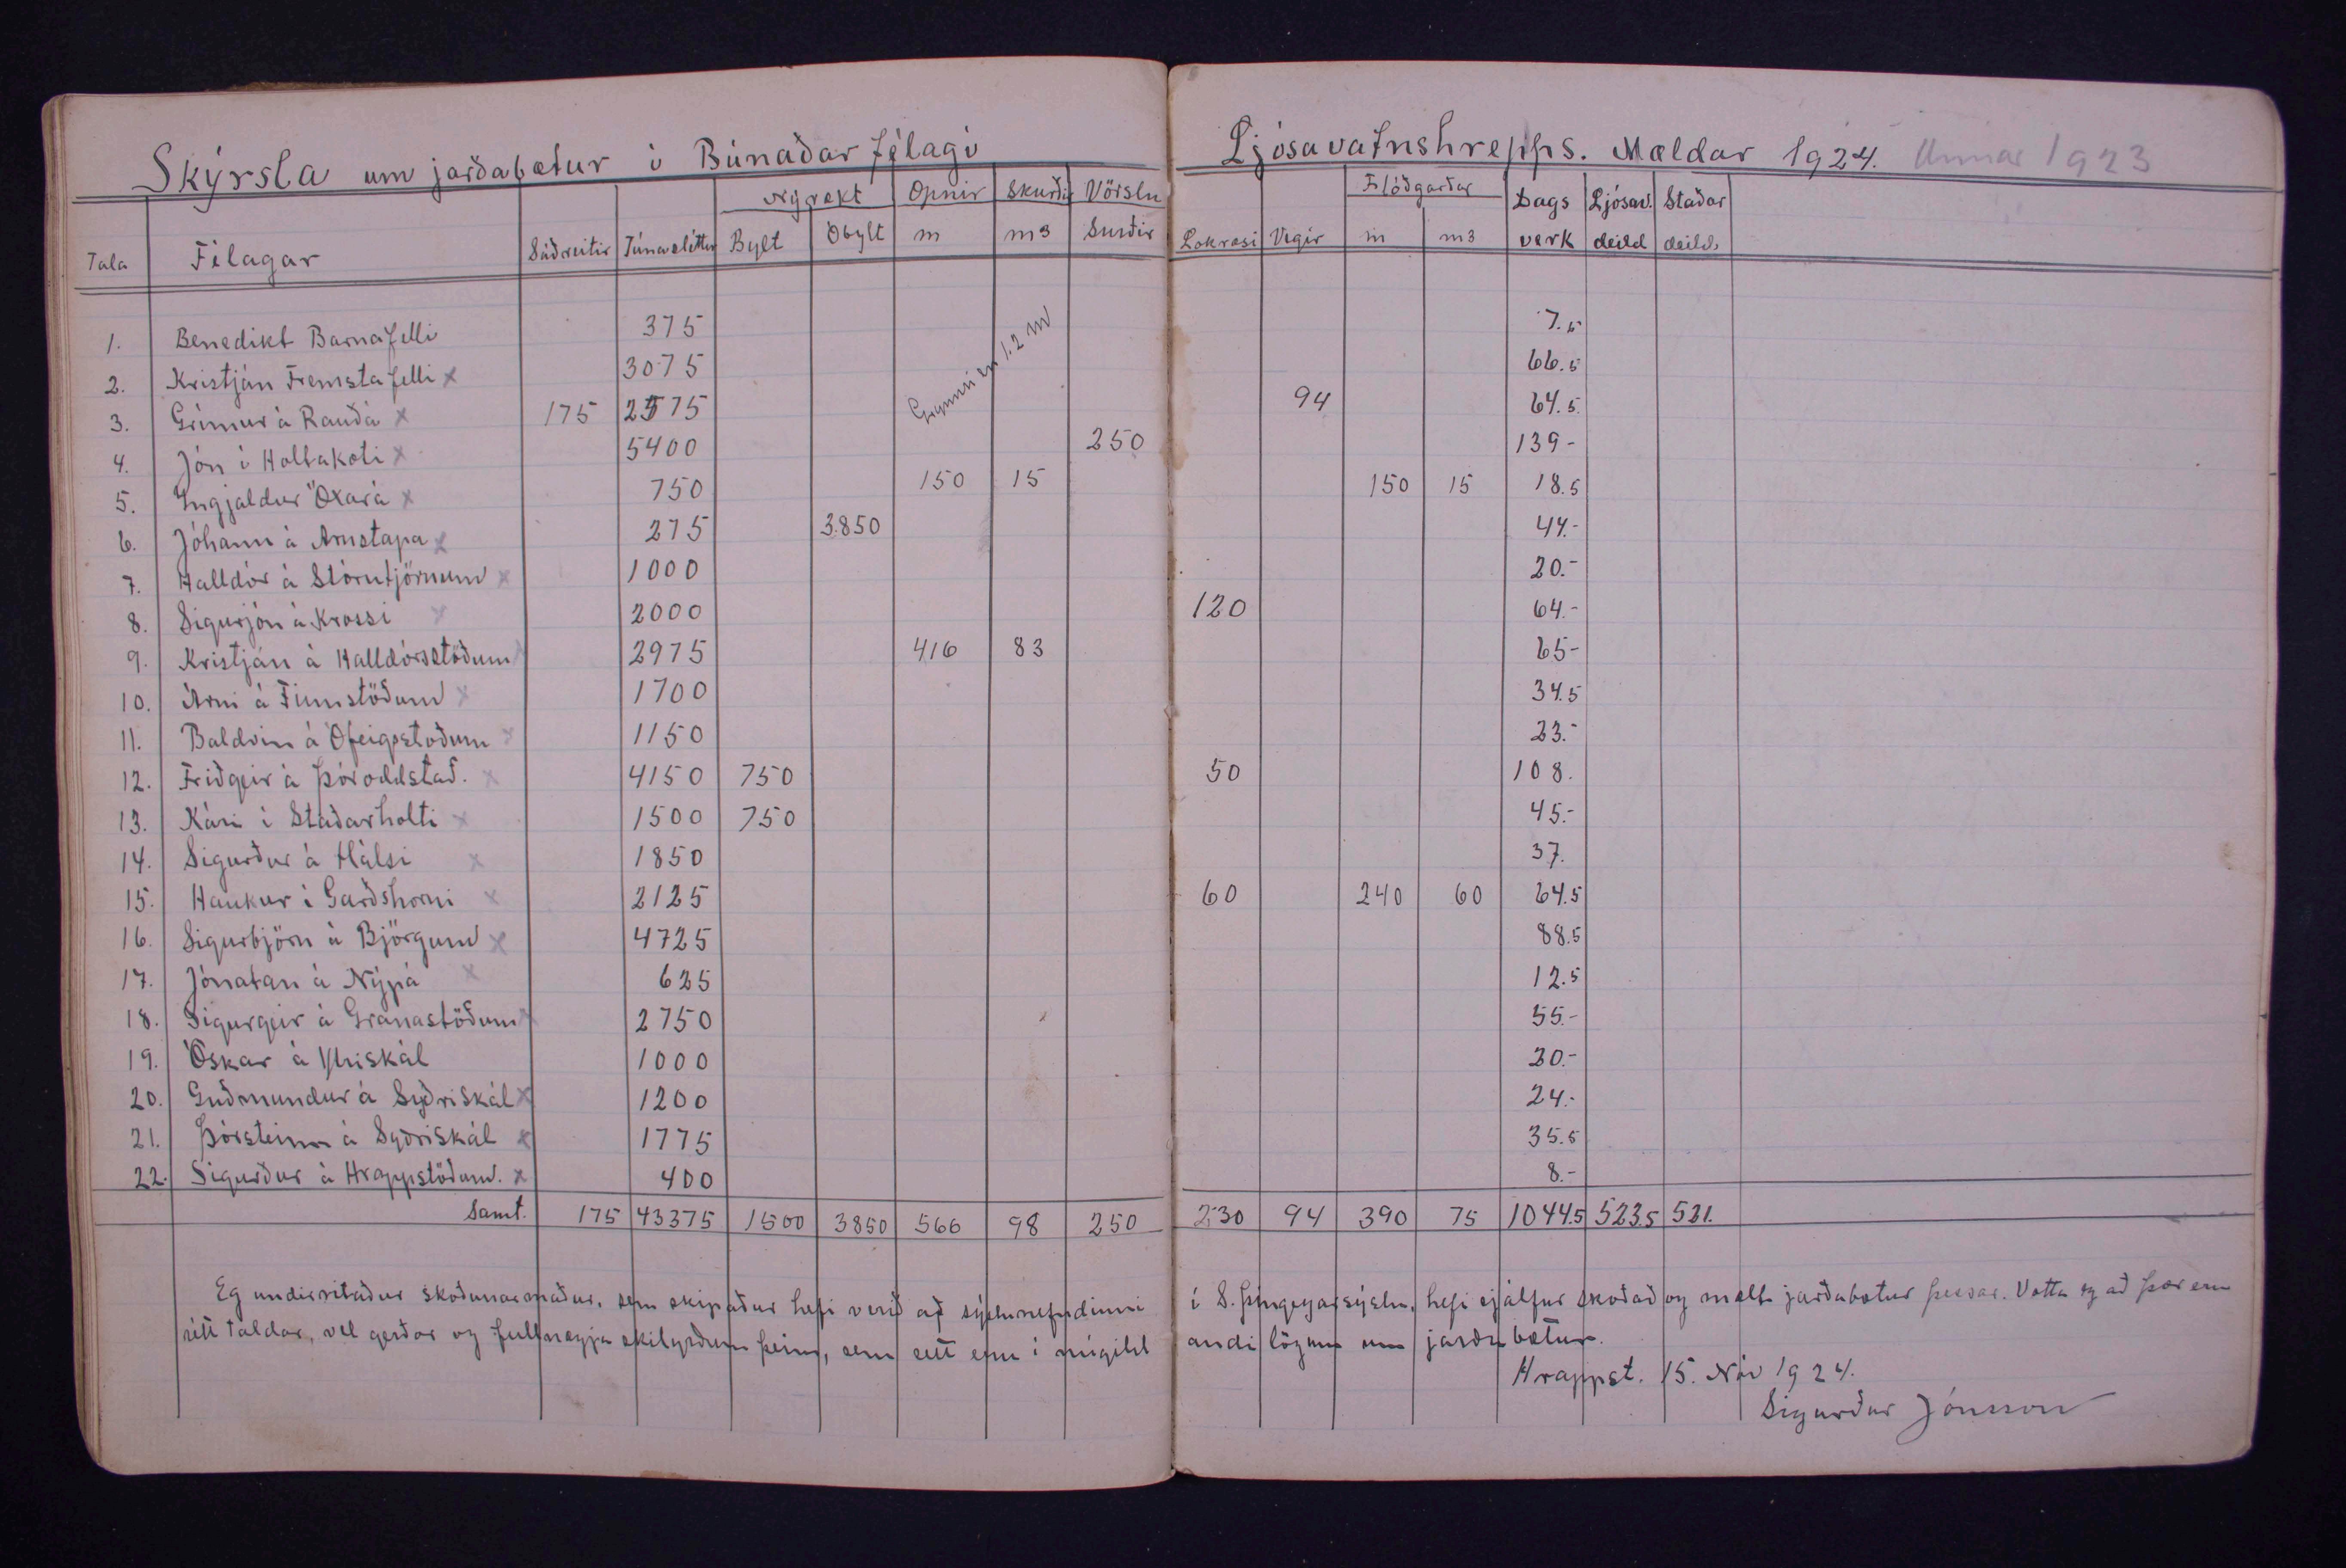 Skýrsla um jarðabætur í Búnaðarfélagi Ljósavatnshrepps. Mældar 1924. Unnar 1923
Nýrækt Opnir Skurðir Vörslu Flóðgarðar Dags Ljósav. Staðar
Tala Félagar Sáðreitir Túnaslétter Bylt Óbylt m m3 Surðir Lokræsi Vegir m m3 verk deild deild.
1. Benedikt Barnafelli 375 7.5
2. Kristján Fremstafelli x 3075 66.5
3. Grímur á Rauðá x 175 2575 Grynnri en 1.2 m 94 64.5
4. Jón í Holtakoti x 5400 250 139-
5. Ingjaldur Öxará x 750 150 15 150 15 18.5
6. Jóhann á Arnstapa x 275 3850 44.-
7. Halldór á Stórutjörnum x 1000 20.-
8. Sigurjón á Krossi x 2000 120 64.-
9. Kristján á Halldórsstöðum x 2975 416 83 65-
10. Árni á Finnstöðum x 1700 34.5
11. Baldvin á Ófeigsstöðum x 1150 23.-
12. Friðgeir á Þóroddstað. x 4150 750 50 108.
13. Kári í Staðarholti x 1500 750 45.-
14. Sigurður á Hálsi x 1850 37.
15. Haukur í Garðshorni x 2125 60 240 60 64.5
16. Sigurbjörn á Björgum x 4725 88.5
17. Jónatan á Nýpá x 625 12.5
18. Sigurgeir á Granastöðum x 2750 55.-
19. Óskar á Ytriskál 1000 20.-
20. Guðmundur á Syðriskál x 1200 24.-
21. Þórsteinn á Syðriskál x 1775 35.5
22. Sigurður á Hrappstöðum. x 400 8.-
Samt. 175 43375 1500 3850 566 98 250 230 94 390 75 1044.5 523.5 521.
Eg undirritaður skoðunarmaður, sem skipaður hefi verið af sýslunefndinni í S. Þingeyjarsýslu, hefi sjálfur skoðað og mælt jarðabætur þessar. Votta eg að þær eru
rétt taldar, vel gerðar og fullnægja skilyrðum þeim, sem sett eru í núgildandi lögum um jarðabætur.
Hrappst. 15. Nóv 1924.
Sigurður Jónsson